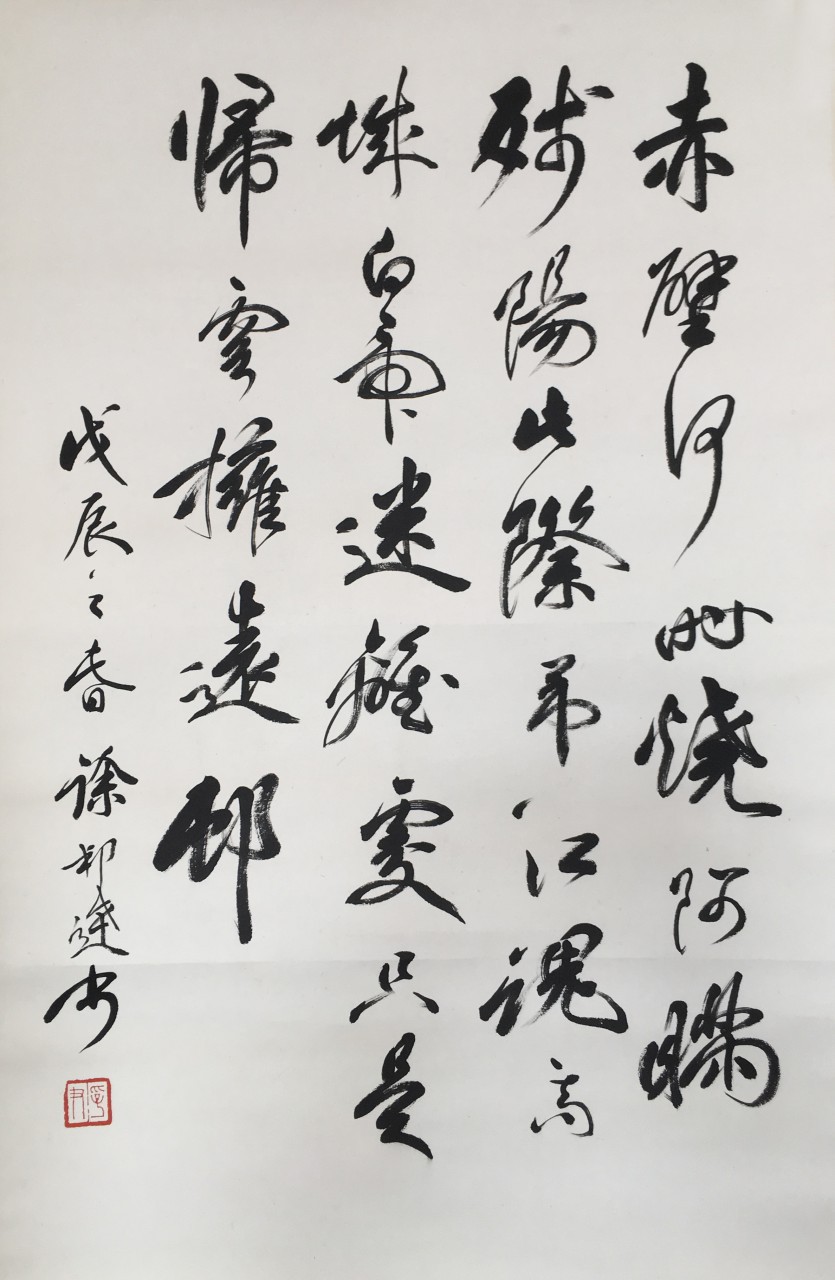 赤壁何時燒阿瞞
殘陽此際弔江魂高
城白帝迷離處只是
歸雲擁遠邨
戊辰之春徐邦達書
孚尹